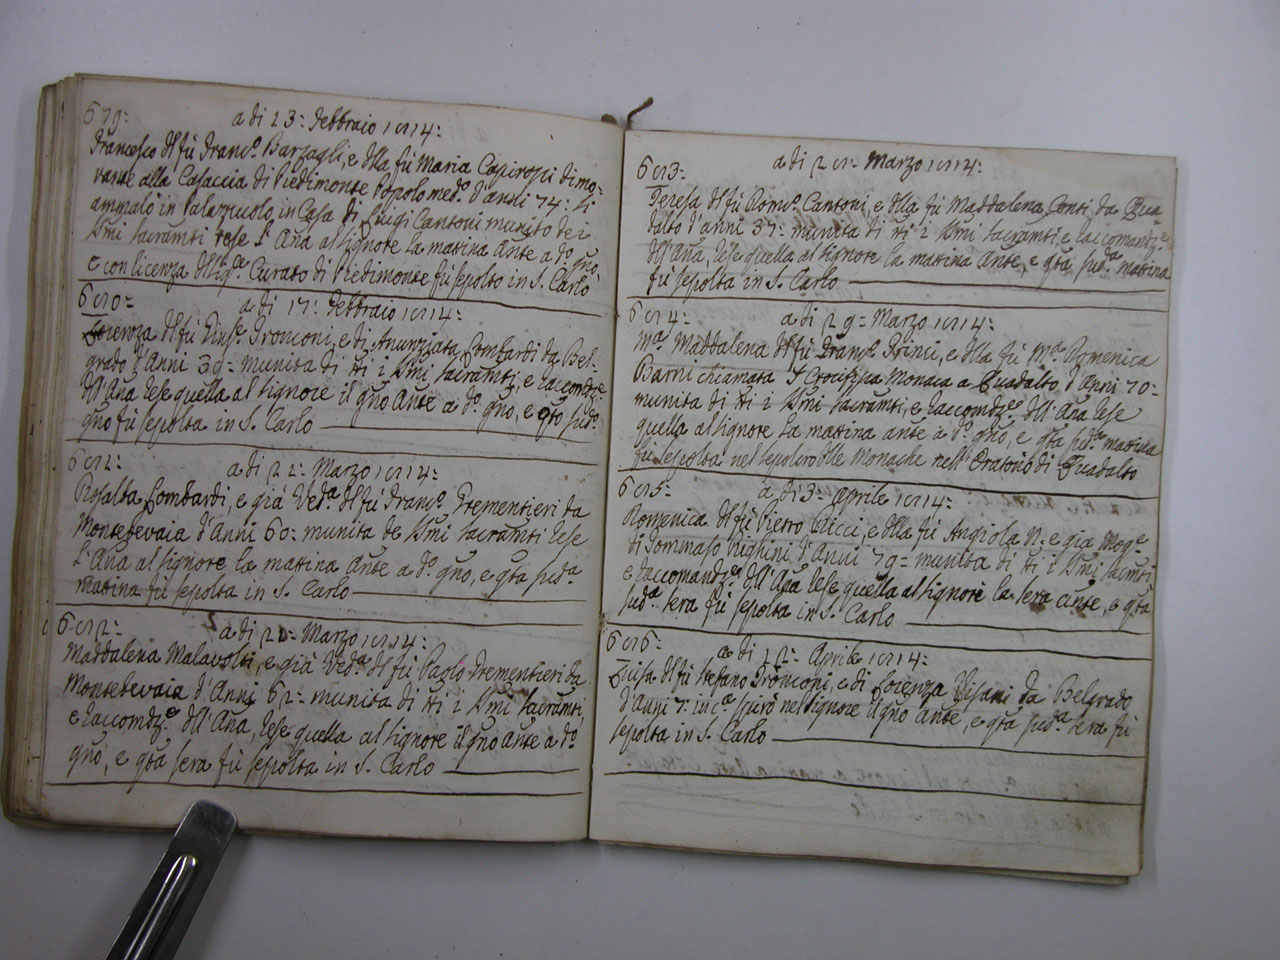 679:
a di 23: Febbraio 1714:
Francesco dl fù Franc.o Barzagli, e dlla fù Maria Capirossi dimo=
rante alla Casaccia di Piedimonte Popolo med.o d'anni 74: si
ammalò in Palazzuolo, in Casa di Luigi Cantoni munito dei
SSmi Sacramti rese l'Ana al Signore la matina ante a d.o gno,
e con licenza dl Sig.re Curato di Piedimonte fù sepolto in S. Carlo
680:
a di 17: Febbraio 1714:
Lorenza dl fù Gius.e Tronconi, e di Anunziata Lombardi da Bel=
grado d'Anni 39= munita di tti i SSmi Sacramti, e raccomdz.e
dll'Ana rese quella al Signore il gno Ante a d.o gno, e qto sud.o
gno fù sepolta in S. Carlo
681:
a di 22: Marzo 1714:
Rosalba Lombardi, e già Ved.a dl fù Franc.o Trementieri da
Montebevaia d'Anni 60: munita de SSmi Sacramti rese
l'Ana al Signore la matina Ante a d.o gno, e qta sud.a
matina fù sepolta in S. Carlo
682:
a di 22: Marzo 1714:
Maddalena Malavolti, e già Ved.a dl fù Paolo Trementieri da
Montebevaia d'Anni 62= munita di tti i SSmi Sacramti,
e raccomdz.e dll'Ana, rese quella al Signore il gno Ante a d.o
gno, e qta sera fù sepolta in S. Carlo
683:
a di 28: Marzo 1714:
Teresa dl fù Dom.o Cantoni, e dlla fù Maddalena Conti da Qua
dalto d'anni 37: munita di tti i SSmi Sacramti, e raccomandz.e
dll'Ana, rese quella al Signore la matina Ante, e qta sud.a matina
fù sepolta in S. Carlo
684:
a di 29= Marzo 1714:
M.a Maddalena dl fù Franc.o Trinci, e dlla fù M.a Domenica
Barni chiamata S. Crocifissa Monaca a Quadalto, d'Anni 70=
munita di tti i SSmi Sacramti, e raccomdz.e dll'Ana rese
quella al Signore la matina ante a d.o gno, e qta sud.a matina
fù sepolta nel sepolcro dlle Monache nell'Oratorio di Quadalto
685:
a di 3= Aprile 1714:
Domenica dl fù Pietro Ricci, e dlla fù Angiola N: e già Mog.e
di Tommaso Righini d'Anni 79= munita di tti i SSmi Sacrmti
e raccomandz.e dll'Ana rese quella al Signore la sera ante, e qta
sud.a sera fù sepolta in S. Carlo
686:
a di 12: Aprile 1714:
Luisa dl fù Stefano Tronconi, e di Lorenza Visani da Belgrado
d'Anni 7: inc.a spirò nel Signore il gno ante, e qta sud.a sera fù
sepolta in S. Carlo